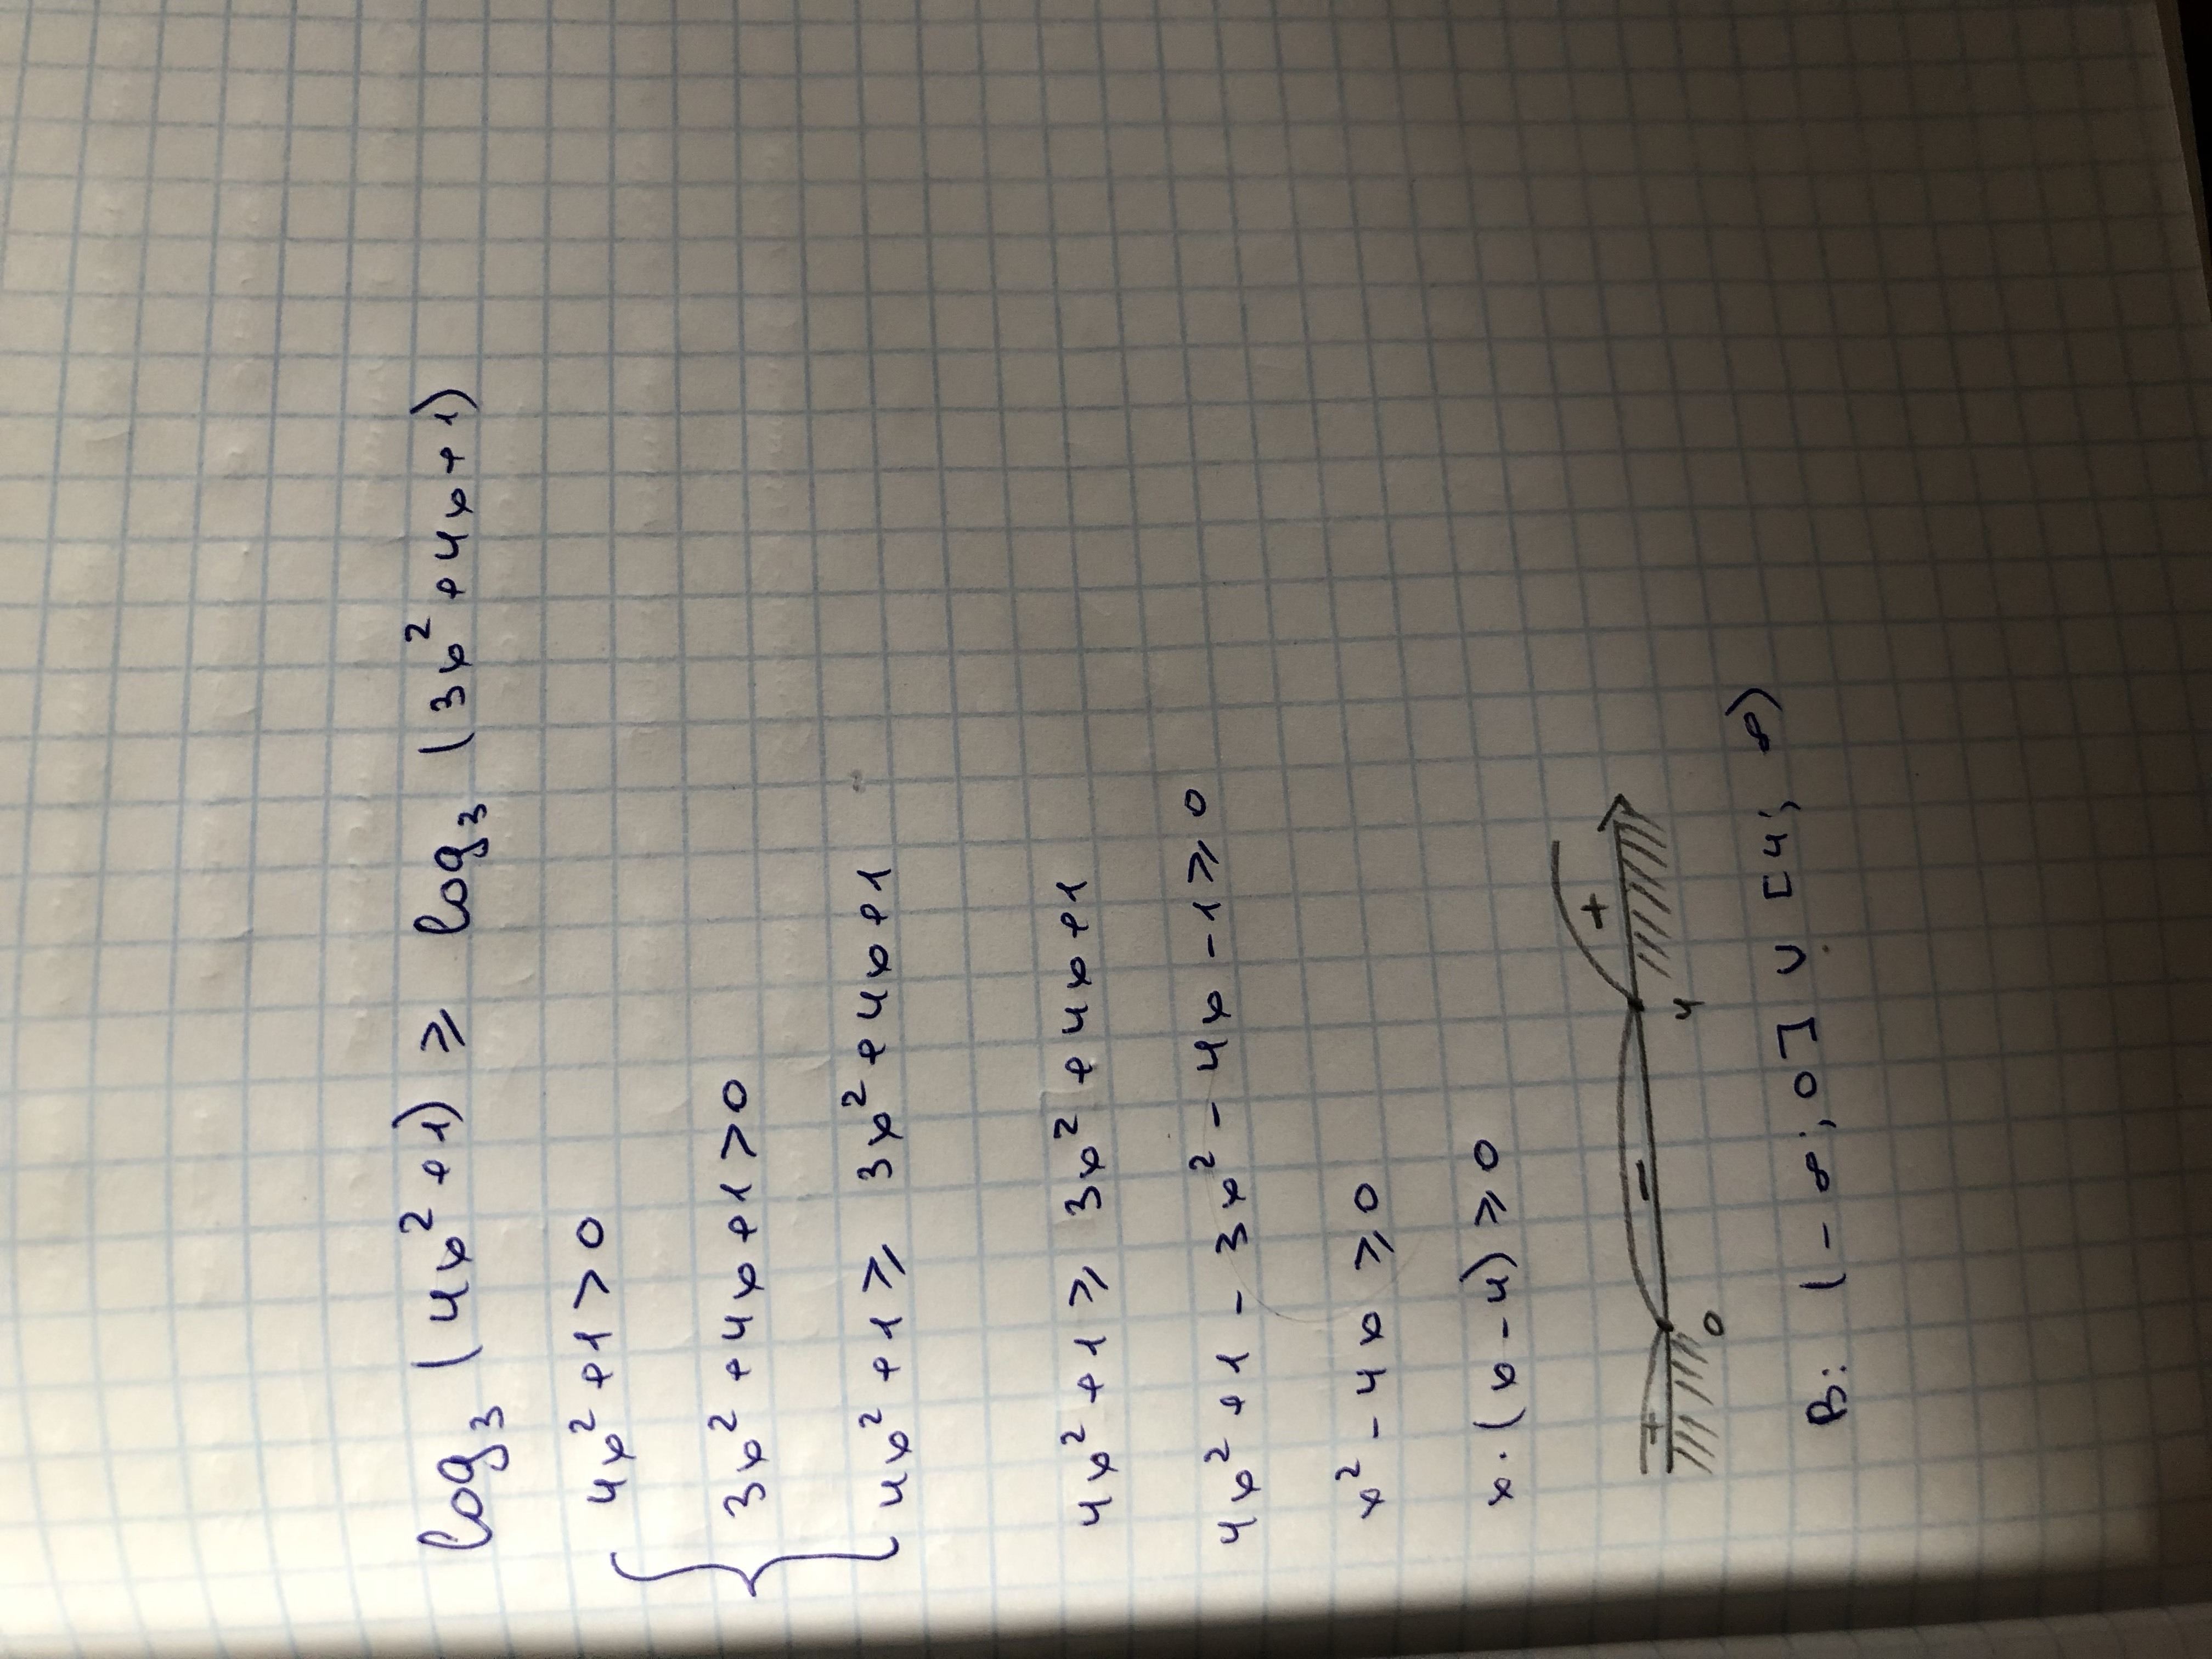 log₃ (4x² + 1) ⩾ log₃ (3x² + 4x + 1)
{ 4x² + 1 > 0
3x² + 4x + 1 > 0
4x² + 1 ⩾ 3x² + 4x + 1
4x² + 1 ⩾ 3x² + 4x + 1
4x² + 1 - 3x² - 4x - 1 ⩾ 0
x² - 4x ⩾ 0
x · (x - 4) ⩾ 0
+ - +
0 4
В: (-∞; 0] ∪ [4; ∞)